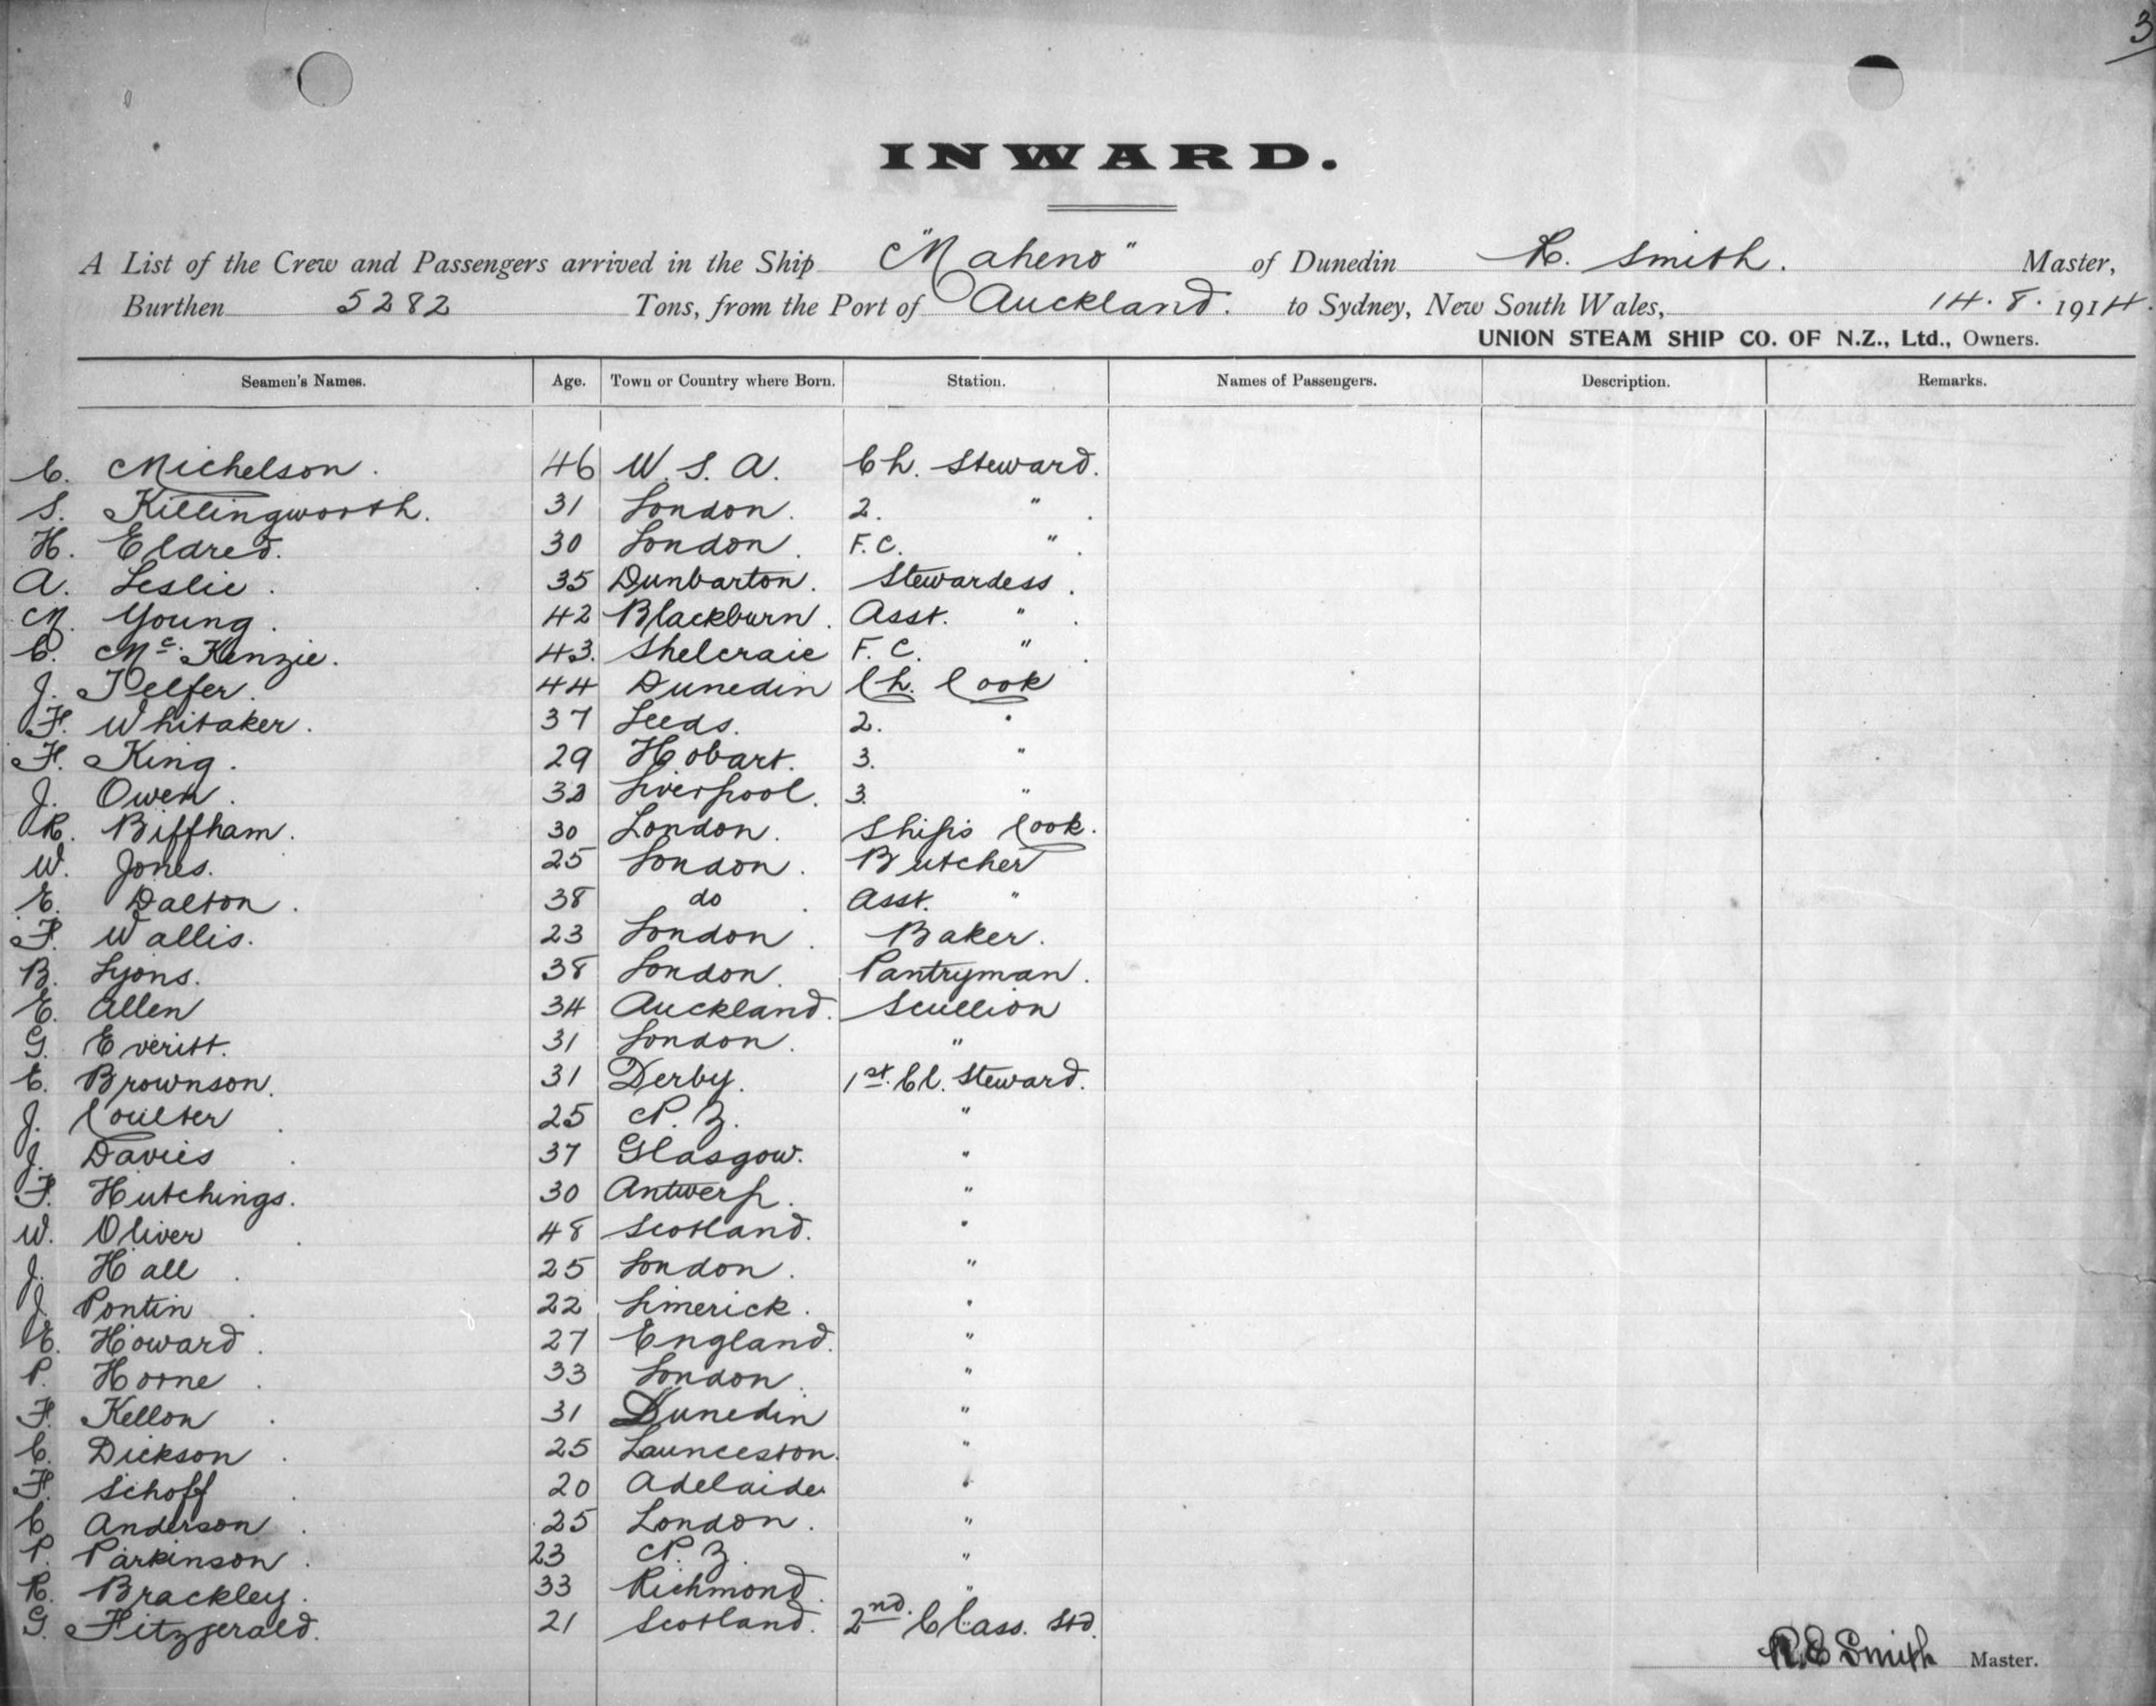 3
INWARD.
A List of the Crew and Passengers arrived in the Ship "Maheno" of Dunedin R. Smith. Master,
Burthen 5282 Tons, from the Port of Auckland. to Sydney, New South Wales, 14.8.1914.
UNION STEAM SHIP CO. OF N.Z., Ltd., Owners.
Seamen's Names. Age. Town or Country where Born. Station. Names of Passengers. Description. Remarks.
C. Michelson. 46 U.S.A. Ch. Steward.
S. Killingworth. 31 London. 2. "
H. Eldred. 30 London. F.C. "
A. Leslie. 35 Dunbarton. Stewardess.
M. Young. 42 Blackburn. Asst. "
C. McKenzie. 43. F.C. "
J. Telfer. 44 Dunedin Ch. Cook
F. Whitaker. 37 Leeds. 2. "
F. King. 29 Hobart. 3. "
J. Owen. 32 Liverpool. 3. "
R. Biffham. 30 London. Ship's Cook.
W. Jones. 25 London. Butcher
E. Dalton. 38 do. Asst. "
F. Wallis. 23 London. Baker.
B. Lyons. 38 London. Pantryman.
E. Allen 34 Auckland. Scullion
G. Everitt. 31 London. "
E. Brownson. 31 Derby. 1st. Cl. Steward.
J. Coulter. 25 N.Z. "
J. Davies. 37 Glasgow. "
F. Hutchings. 30 Antwerp. "
W. Oliver. 48 Scotland. "
J. Hall. 25 London. "
J. Pontin. 22 Limerick. "
E. Howard. 27 England. "
P. Horne. 33 London. "
F. Kellon. 31 Dunedin "
C. Dickson. 25 Launceston. "
F. Schoff. 20 Adelaide "
C. Anderson. 25 London. "
P. Parkinson. 23 N.Z. "
R. Brackley. 33 Richmond. "
G. Fitzgerald. 21 Scotland. 2nd. Class. Std.
R.E Smith Master.